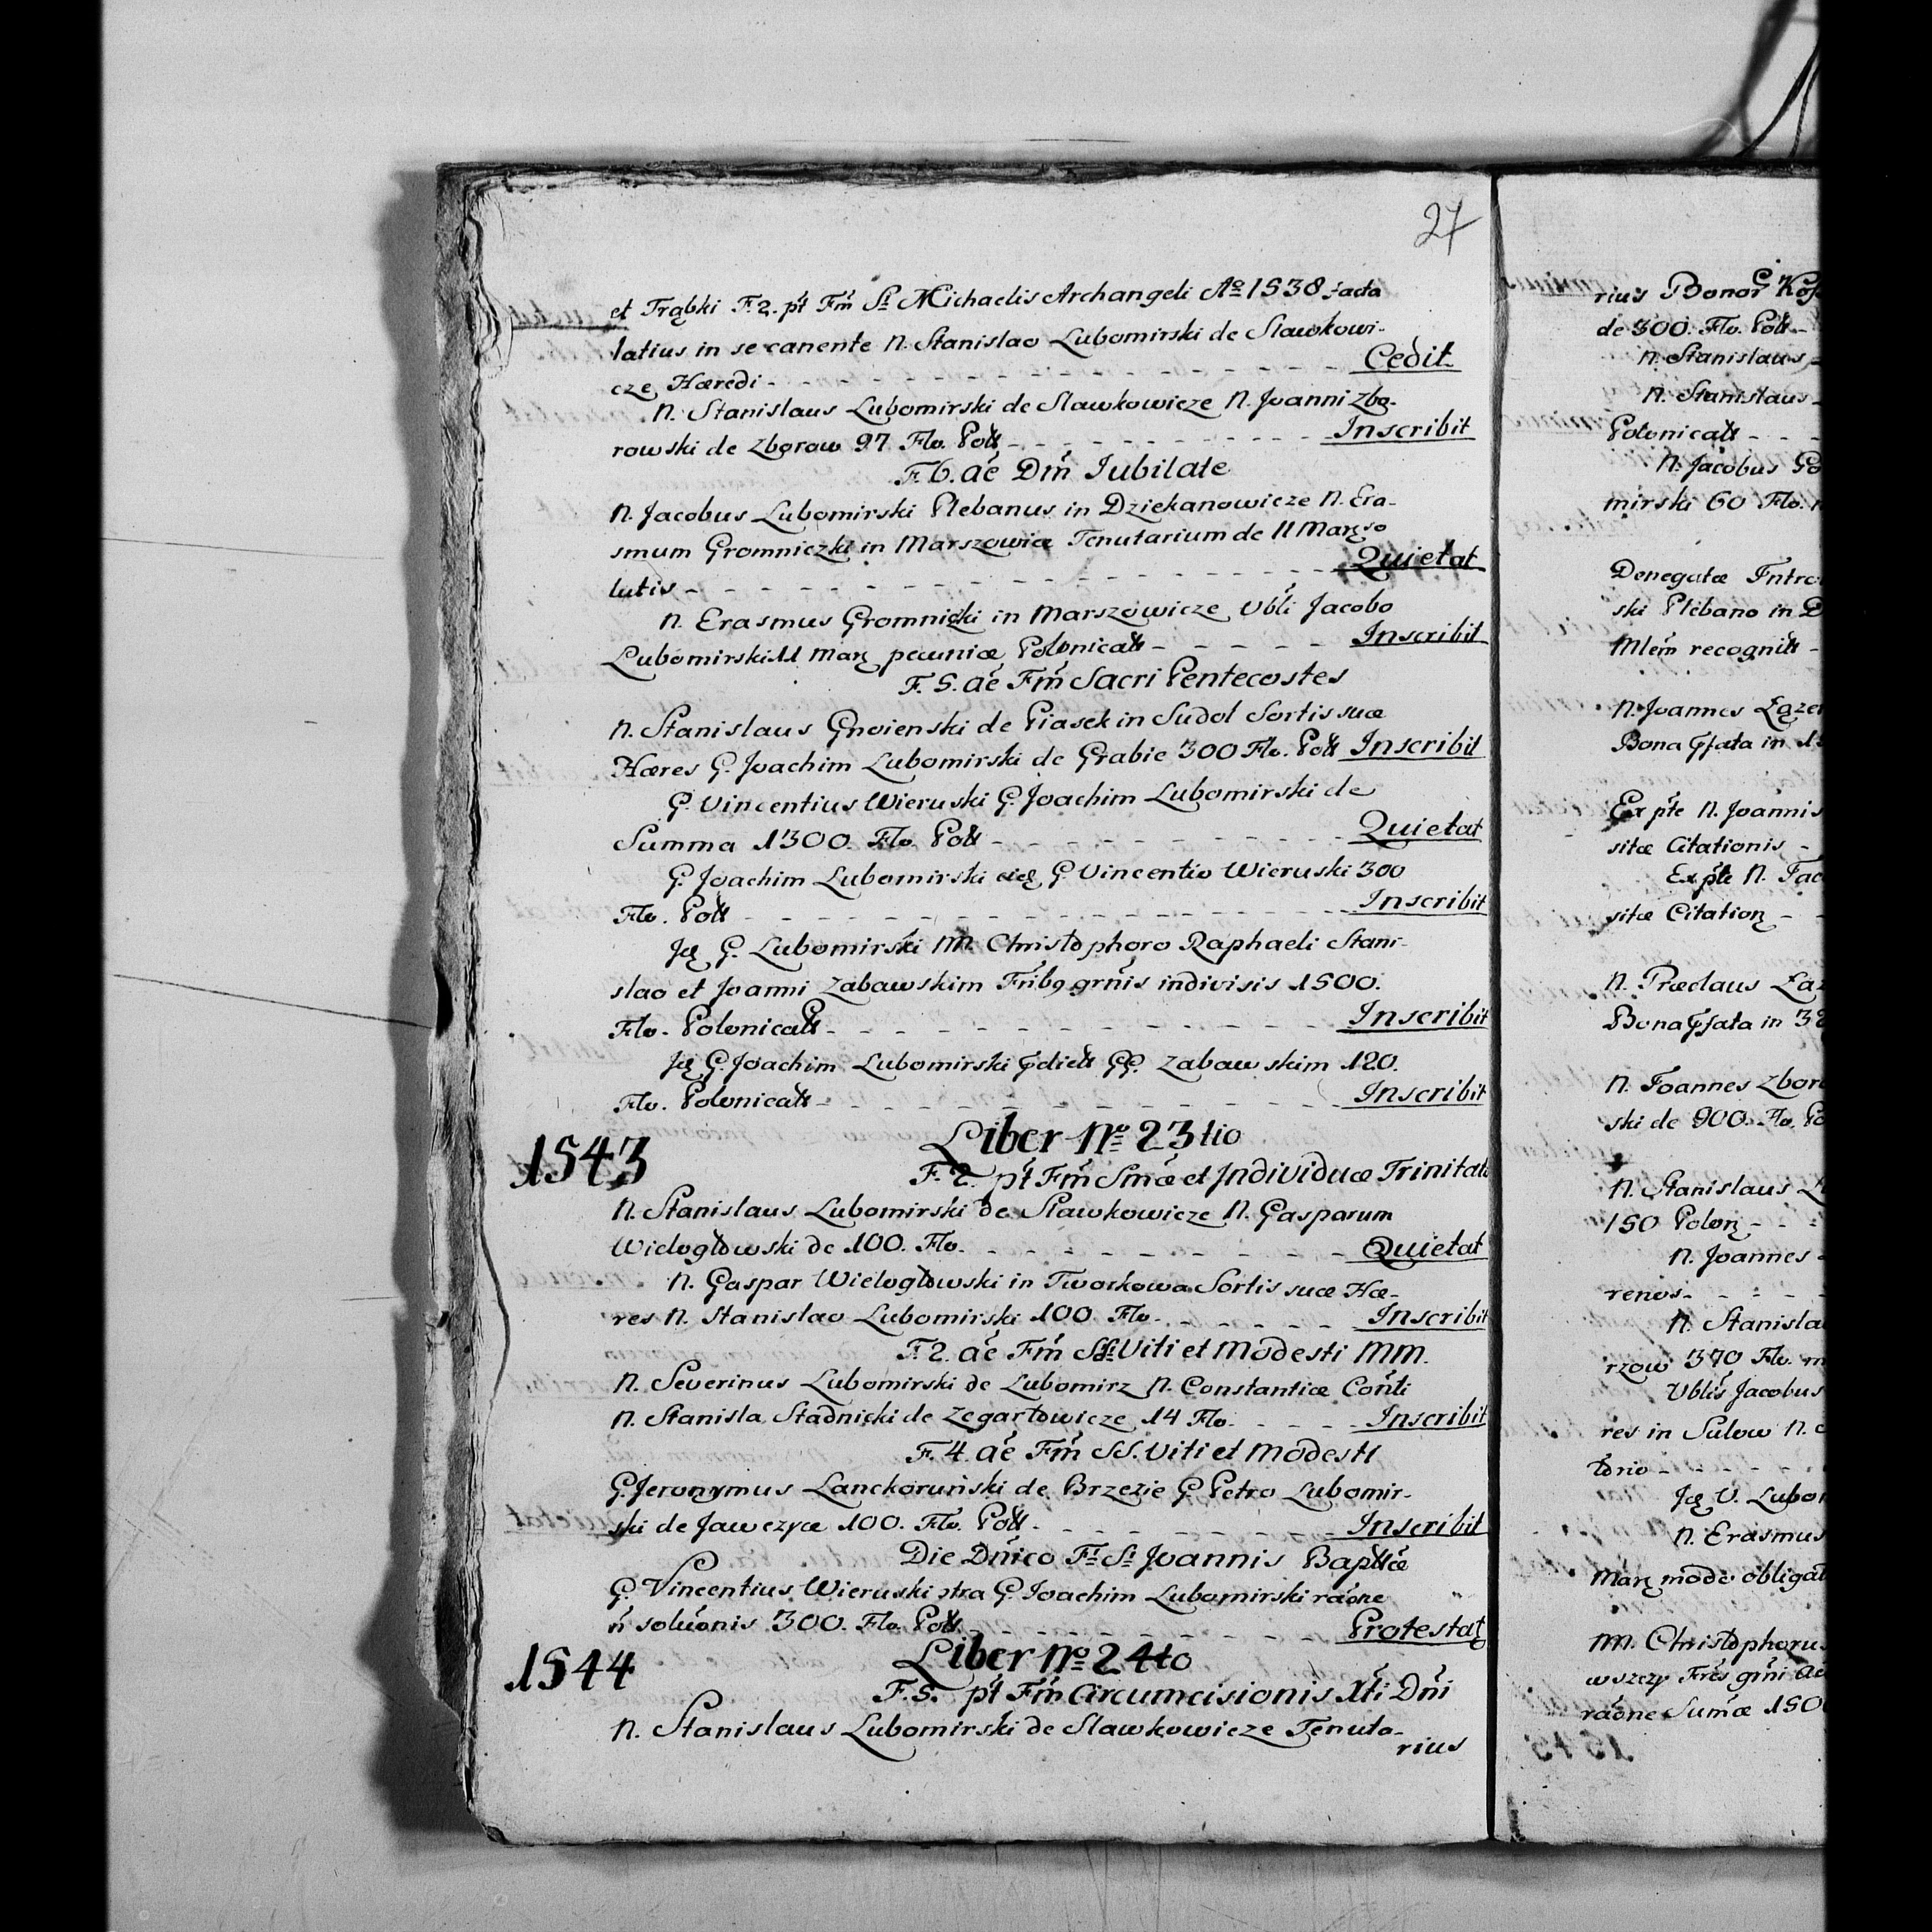 27
et Trąbki F. 2. pt Fm St Michaelis Archangeli Ao 1538 facta
latius in se canente N. Stanislao Lubomirski de Slawkowi-
cze Hæredi - - - Cedit
N. Stanislaus Lubomirski de Slawkowicze N. Joanni Zbo-
rowski de Zborow 97 Flo. Polls - - - Inscribit
F. 6. ae Dm Iubilate
N. Jacobus Lubomirski Plebanus in Dziekanowicze N. Era-
smum Gromniczki in Marszowice Tenutarium de 11 Marz so
lutis - - - Quietat
N. Erasmus Gromnicki in Marszowicze Vbli Jacobo
Lubomirski 11 Marz pecuniæ Polonicalls - - - Inscribit
F. 5. ae Fm Sacri Pentecostes
N. Stanislaus Gnoienski de Piasek in Sudol Sortis suæ
Hæres G. Joachim Lubomirski de Grabie 300 Flo. Polls Inscribit
G. Vincentius Wieruski G. Joachim Lubomirski de
Summa 1300. Flo. Polls - - - Quietat
G. Joachim Lubomirski G. Vincentio Wieruski 300
Flo. Polls - - - Inscribit
Jdę G. Lubomirski NN. Christophoro Raphaeli Stani-
slao et Joanni Zabawskim Frib9 grnis indivisis 1500.
Flo. Polonicalls - - - Inscribit
Jdę G. Joachim Lubomirski pdictis GG. Zabawskim 120.
Flo. Polonicalls - - - Inscribit
1543 Liber No 23tio
F. 2. pt Fm Smæ et Individuæ Trinitatis
N. Stanislaus Lubomirski de Slawkowicze N. Gasparum
Wielogłowski de 100. Flo. - - - Quietat
N. Gaspar Wielogłowski in Tworkowa Sortis suæ Hæ-
res N. Stanislao Lubomirski 100 Flo. - - - Inscribit
F. 2. ae Fm SS. Viti et Modesti MM.
N. Severinus Lubomirski de Lubomirz N. Constantiæ Conti
N. Stanisla Stadnicki de Zegartowicze 14 Flo. - - - Inscribit
F. 4. ae Fm SS. Viti et Modesti
G. Jeronymus Lanckoruński de Brzezie G. Petro Lubomir-
ski de Jawczyce 100. Flo. Polls - - - Inscribit
Die Dnico Fti St Joannis Bapttæ
G. Vincentius Wieruski ctra G. Joachim Lubomirski raone
n soluonis 300. Flo. Polls - - - Protestat
1544 Liber No 24to
F. 5. pt Fm Circumcisionis Xti Dni
N. Stanislaus Lubomirski de Slawkowicze Tenuta-
rius
rius Bonor
de 300. Flo. Polls -
N. Stanislaus
N. Stanislaus
Polonicalls - - -
N. Jacobus
mirski 60 Flo.
Denegatæ
ski Plebano in
Mlem recognit -
N. Joannes
Bona pfata in
Ex pte N. Joannis
sitæ Citationis -
Ex pte N.
sitæ Citation - -
N. Præclaus
Bona pfata in
N. Joannes
ski de 900. Flo.
N. Stanislaus
150 Polon - - -
N. Joannes
renos - - -
N.
rzow 370 Flo.
Vblis Jacobus
res in Sulow N.
torio - - -
Jdę V.
N. Erasmus
Marz modo
NN.
wszczy Fres grni
raone Sumæ